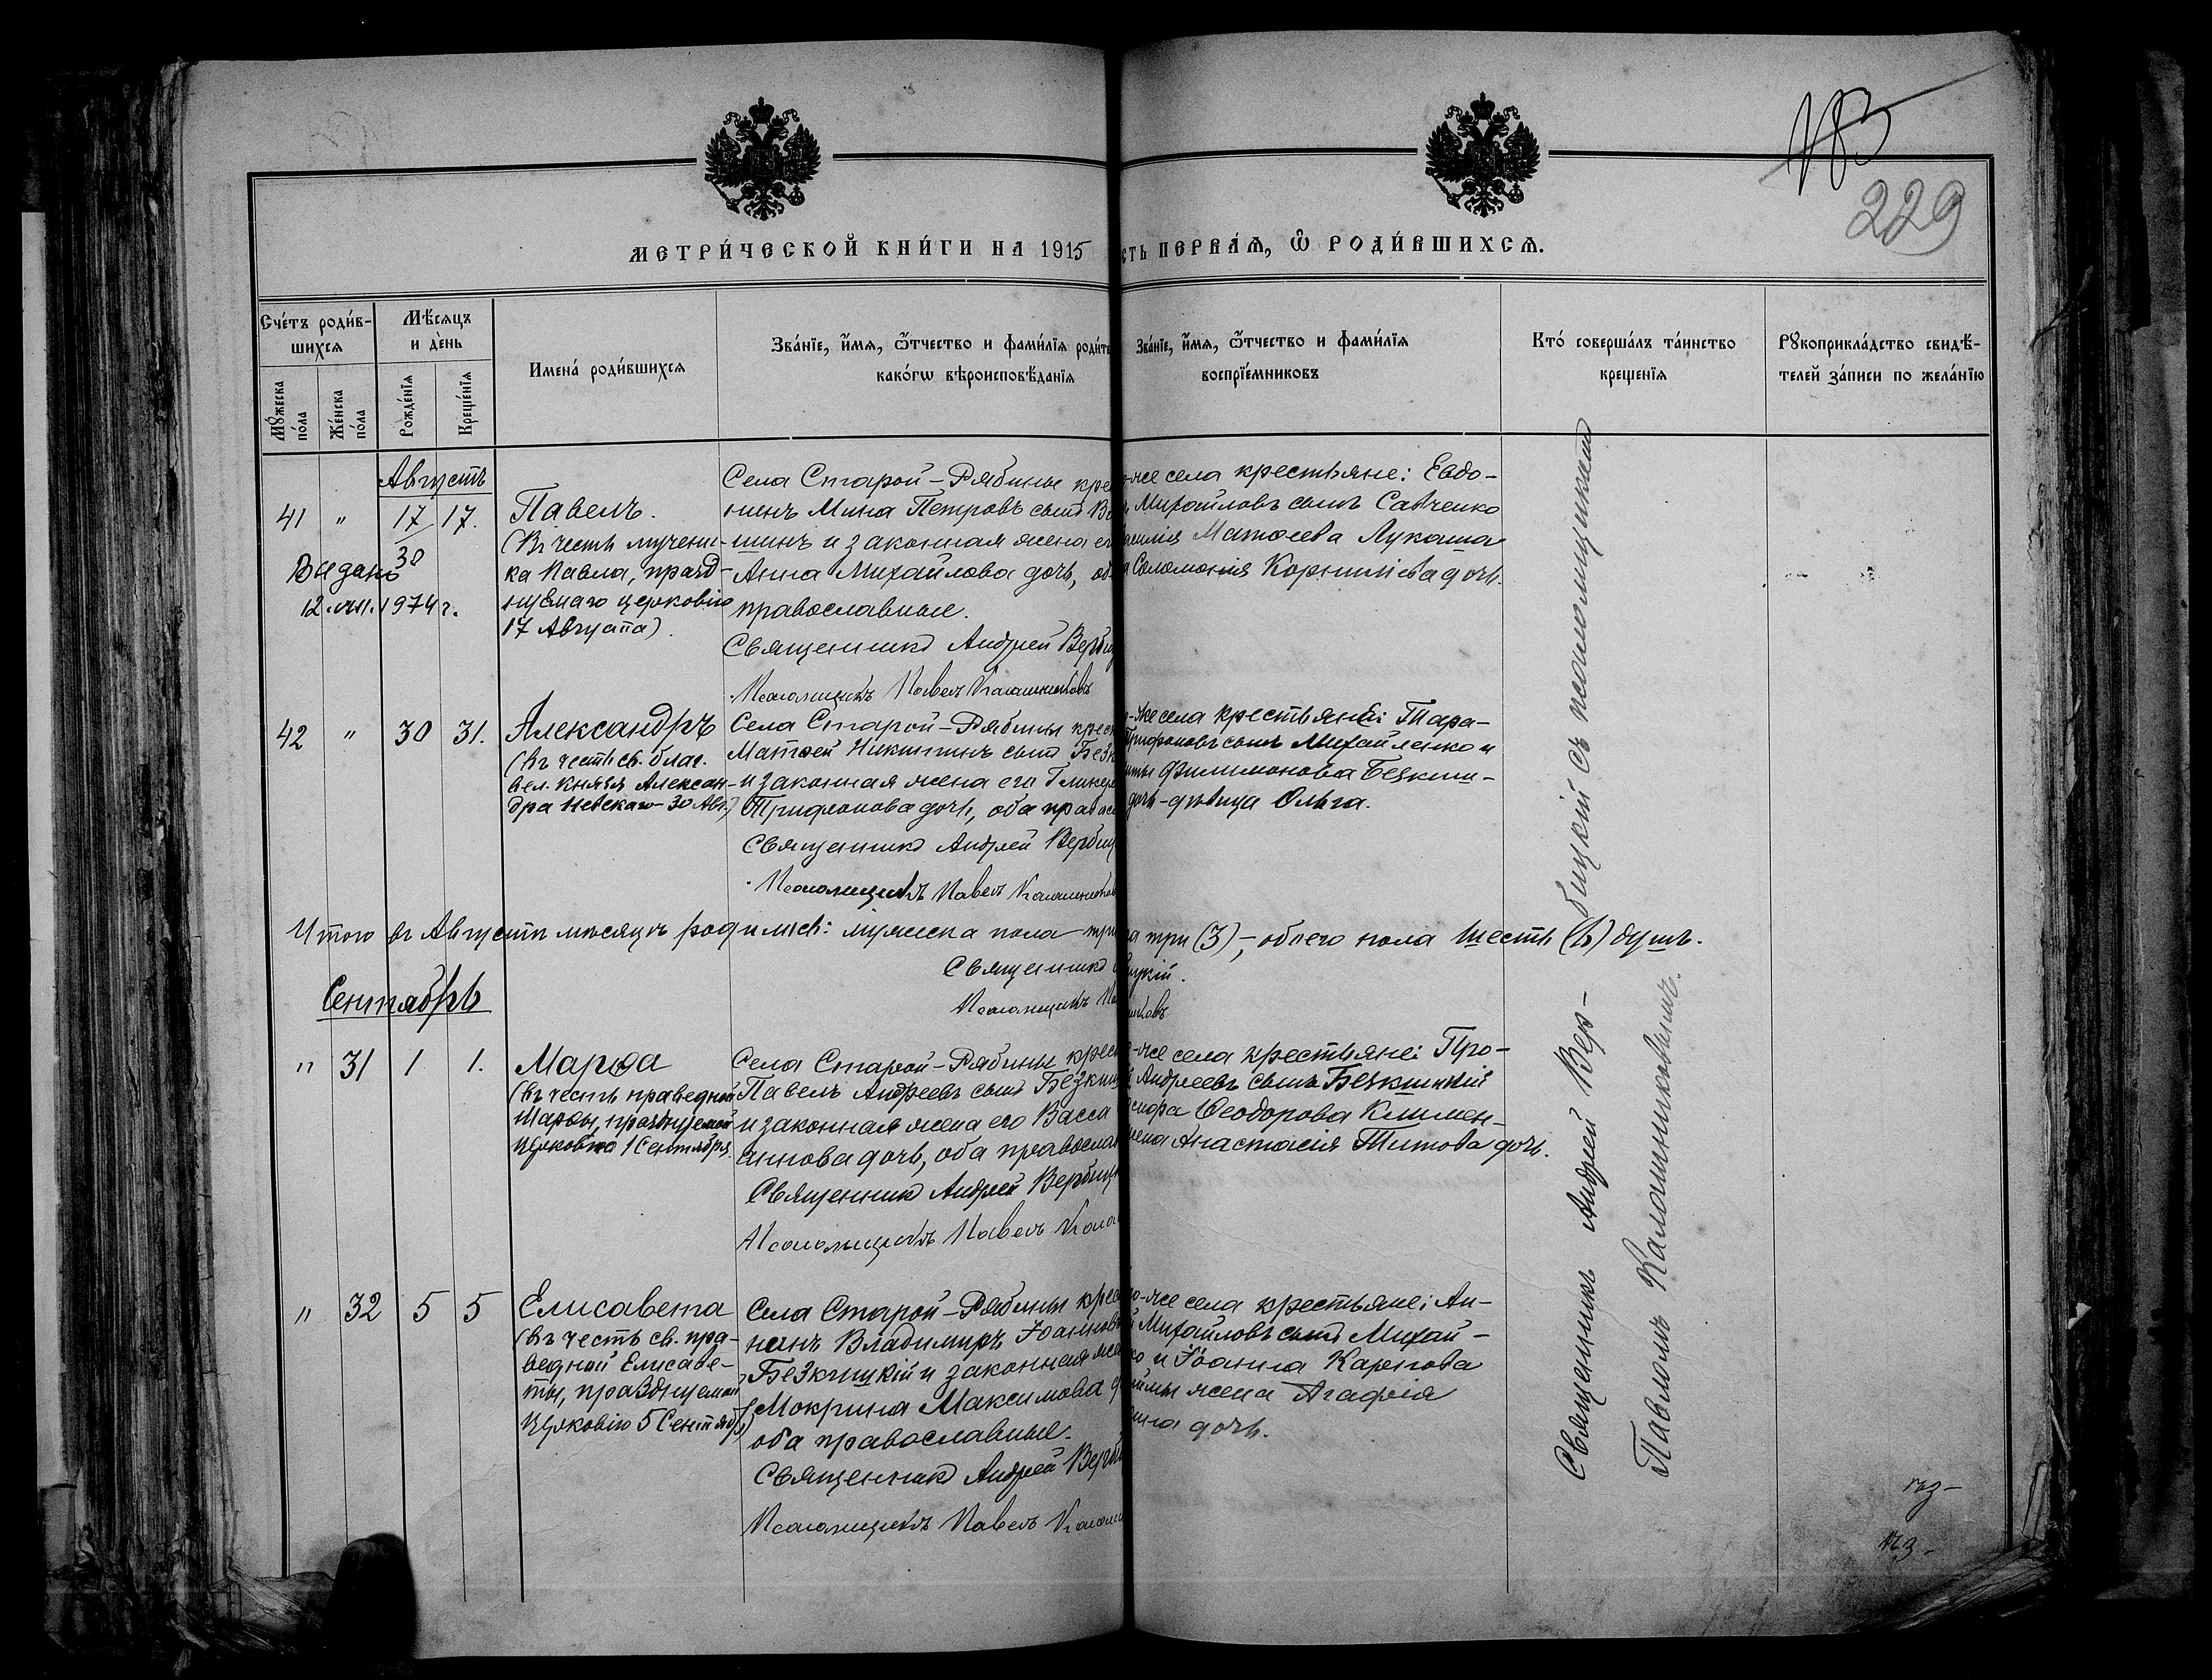 183
229
МЕТРИ́ЧЕСКОЙ КНИ́ГИ НА 1915
СТЬ ПЕРВА́Я, Ѽ РОДИ́ВШИХСЯ.
Сче́тъ роди́в-
шихся
Мѣ́сяцъ
и де́нь
Му́жеска
по́ла
Же́нска
по́ла
Рожде́нїя
Креще́нїя
Имена́ роди́вшихся
Зва́нїе, и́мя, ѻ́тчество и фами́лїя роди́те
како́гѡ вѣроисповѣ́данїя
Зва́нїе, и́мя, ѻ́тчество и фами́лїя
воспрїе́мниковъ
Кто́ соверша́лъ та́инство
креще́нїя
Рукоприкла́дство свидѣ́-
телей за́писи по жела́нїю
Августъ
41 " 17 17.
30
Выдано
12.VII.1974 г.
Павелъ.
(Въ честь мучени-
ка Павла, празд-
нуемаго церковію
17 Августа).
Села Старой-Рябины кре
нинъ Мина Петровъ сынъ Во
шинъ и законная жена ег
Анна Михайлова дочь, об
православные.
Священникъ Андрей Вербиц
Псаломщикъ Павелъ Калашниковъ
о-же села крестьяне: Евдо-
Михайловъ сынъ Савченко
Матѳеева Лукаша
Соломонія Корниліева дочь.
42 " 30 31.
Александръ
(въ честь св. благ.
вел. князя Алексан-
дра Невскаго-30 Авг.)
Села Старой-Рябины крест
Матѳей Никитинъ сынъ Безк
и законная жена его Гликер
Трифонова дочь, оба правос
Священникъ Андрей Вербиц
Псаломщикъ Павелъ Калашников
о-же села крестьяне: Тара-
Трифоновъ сынъ Михайленко и
Филимонова Безкиш-
дочь-дѣвица Ольга.
Итого въ Августѣ мѣсяцѣ родилось: мужеска пола три
а три (3)-, обоего пола шесть (6) душъ.
Священникъ
ицкій.
Псаломщикъ Па
иковъ
Сентябрь
" 31 1 1.
Марѳа
(въ честь праведной
Марѳы, празднуемой
церковію 1 Сентября.
Села Старой-Рябины крест
Павелъ Андреевъ сынъ Безкиш
и законная жена его Васса
аннова дочь, оба правосла
Священникъ Андрей Вербицк
Псаломщикъ Павелъ Кала
о-же села крестьяне: Про-
Андреевъ сынъ Безкишкій
Ѳеодорова Климен-
жена Анастасія Титова дочь.
" 32 5 5
Елисавета
(въ честь св. пра-
ведной Елисаве-
ты, празднуемой
церковію 5 Сентяб.)
Села Старой-Рябины крес
нинъ Владимиръ Іоанновъ
Безкишкій и законная же
Мокрина Максимова д
оба православные.
Священникъ Андрей Верби
Псаломщикъ Павелъ Калаш
о-же села крестьяне: Ан-
Михайловъ сынъ Михай-
ко и Іоанна Карпова
жена Агафія
ина дочь.
Священникъ Андрей Вер-
бицкій съ псаломщикомъ
Павломъ Калашниковымъ.